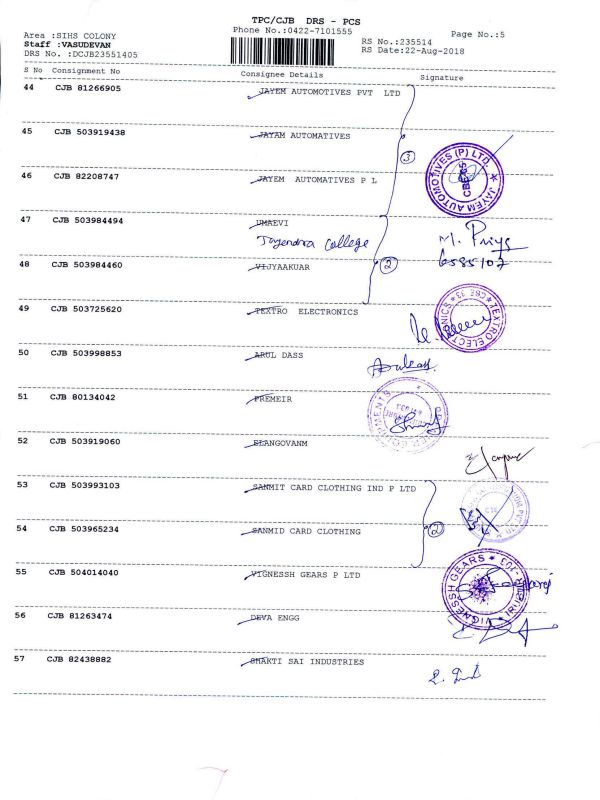 TPC/CJB DRS - PCS
Phone No.:0422-7101555
Page No.:5
Area :SIHS COLONY
Staff :VASUDEVAN
DRS No. :DCJB23551405
RS No.:235514
RS Date:22-Aug-2018
S No Consignment No Consignee Details Signature
44 CJB 81266905 JAYEM AUTOMOTIVES PVT LTD
45 CJB 503919438 JAYAM AUTOMATIVES
3
46 CJB 82208747 JAYEM AUTOMOTIVES P L
JAYEM AUTOMOTIVES (P) LTD. ★
47 CJB 503984494 UMAEVI
Jayendra College
M. Priya
6385107
48 CJB 503984460 VIJYAAKUAR
2
49 CJB 503725620 TEXTRO ELECTRONICS
TEXTRO ELECTRONICS ★ CBE 33 ★
50 CJB 503998853 ARUL DASS
51 CJB 80134042 PREMEIR
52 CJB 503919060 ELANGOVANM
53 CJB 503993103 SANMIT CARD CLOTHING IND P LTD
54 CJB 503965234 SANMID CARD CLOTHING
2
55 CJB 504014040 VIGNESSH GEARS P LTD
VIGNESSH GEARS ★
56 CJB 81263474 DEVA ENGG
57 CJB 82438882 SHAKTI SAI INDUSTRIES